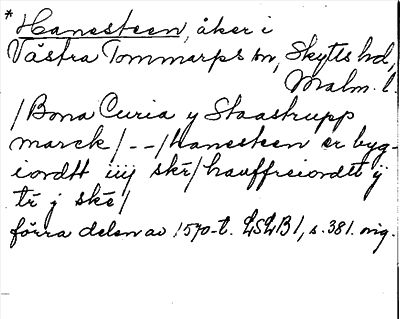 * Hanesteen, åker i
Västra Tommarps sn, Skytts hd,
Malm. l.
/Bona Curia y Staastrupp
marck/ -- /Hanesteen er byg-
iordtt iiij skr̄/ hauffreiordtt ij
tr̄ j skē/
förra delen av 1570-t. LSLB 1, s. 381. orig.